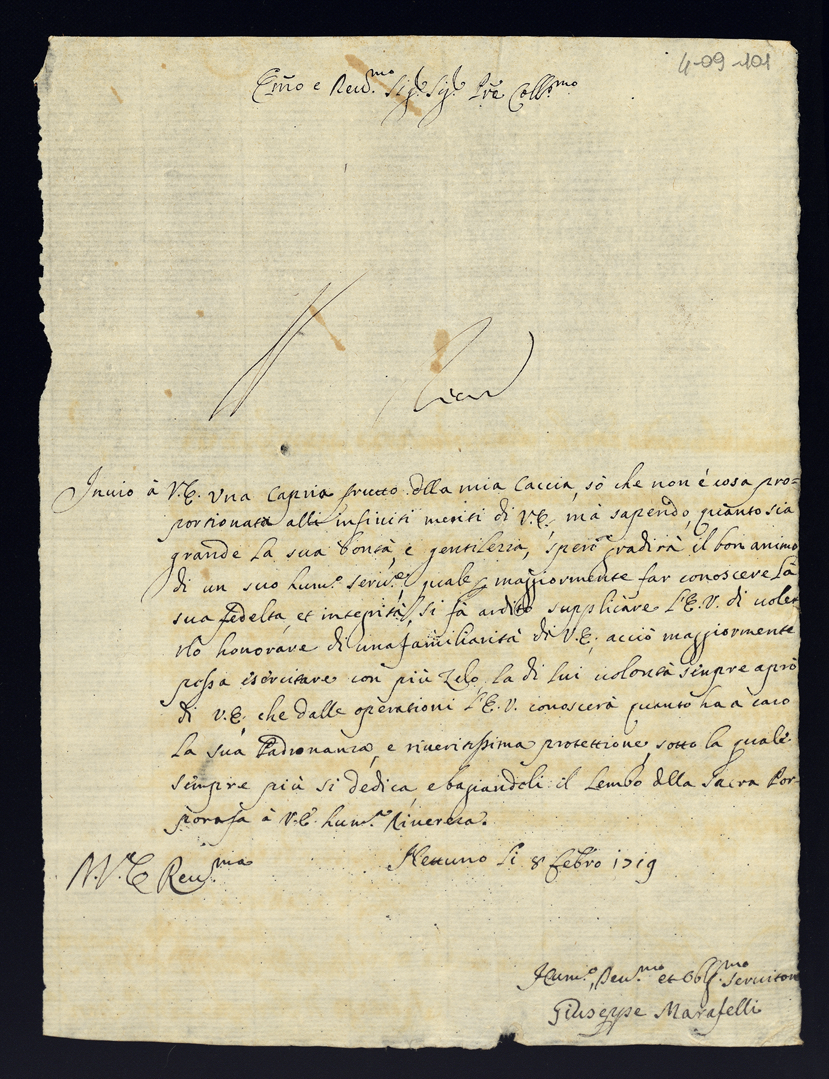 4-09-101
Em̃o e Reud.mo Sig.e Sig.e P̃ne Coll.mo
Inuio à V.E. vna Capria frutto della mia Caccia, sò che non è cosa pro=
portionata alli infiniti meriti di V.E. mà sapendo quanto sia
grande la sua bontà, e gentilezza, spero gradirà il bon animo
di un suo hum.o seru.e, quale p maggiormente far conoscere la
sua fedeltà, et integrità, si fà ardito supplicare l'E.V. di voler
lo honorare di una familiarità di V.E. acciò maggiormente
possa esercitare con più zelo la di lui uolontà sempre a prò
di V.E. che dalle operationi l'E.V. conoscerà quanto ha a caro
la sua Padronanza, e riueritissima protettione, sotto la quale
sempre più si dedica e baciandoli il Lembo della Sacra Por=
pora fà à V.E. hum.a Riuerenza.
Nettuno li 8 Febro 1719
V.E. Reu.ma
Hum.o, Deu.mo et Obl.mo Seruitore
Giuseppe Marafelli